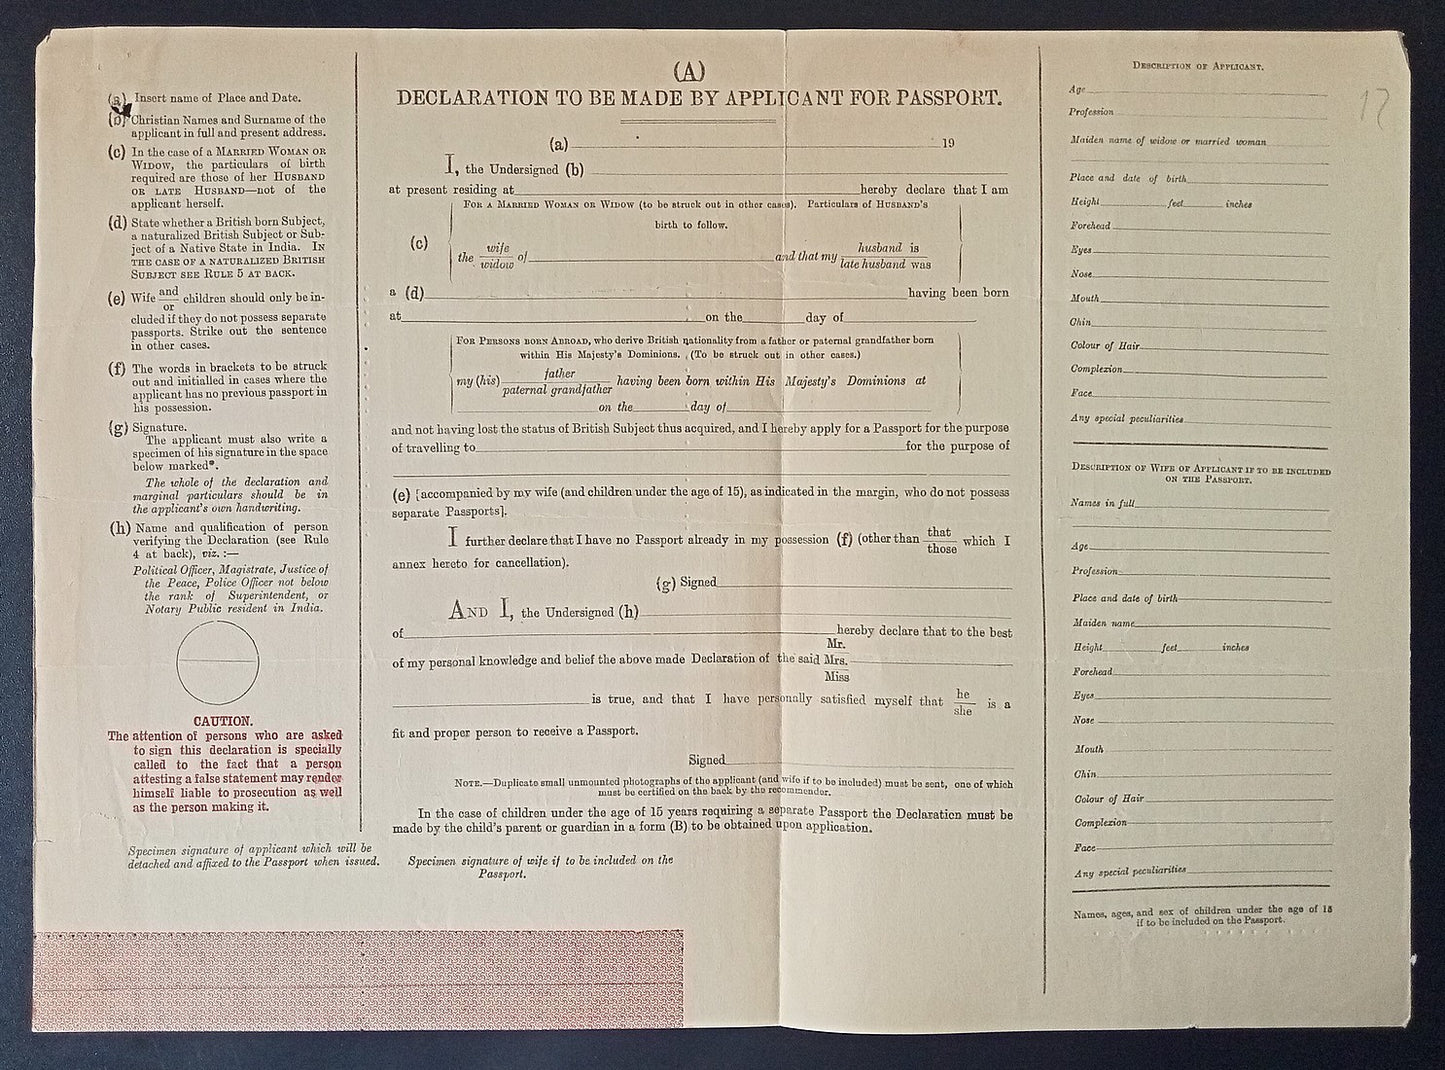 (a) Insert name of Place and Date.
(b) Christian Names and Surname of the
applicant in full and present address.
(c) In the case of a MARRIED WOMAN OR
WIDOW, the particulars of birth
required are those of her HUSBAND
OR LATE HUSBAND—not of the
applicant herself.
(d) State whether a British born Subject,
a naturalized British Subject or Sub-
ject of a Native State in India. IN
THE CASE OF A NATURALIZED BRITISH
SUBJECT SEE RULE 5 AT BACK.
(e) Wife and/or children should only be in-
cluded if they do not possess separate
passports. Strike out the sentence
in other cases.
(f) The words in brackets to be struck
out and initialled in cases where the
applicant has no previous passport in
his possession.
(g) Signature.
The applicant must also write a
specimen of his signature in the space
below marked*.
The whole of the declaration and
marginal particulars should be in
the applicant's own handwriting.
(h) Name and qualification of person
verifying the Declaration (see Rule
4 at back), viz. :—
Political Officer, Magistrate, Justice of
the Peace, Police Officer not below
the rank of Superintendent, or
Notary Public resident in India.
CAUTION.
The attention of persons who are asked
to sign this declaration is specially
called to the fact that a person
attesting a false statement may render
himself liable to prosecution as well
as the person making it.
Specimen signature of applicant which will be
detached and affixed to the Passport when issued.
(A)
DECLARATION TO BE MADE BY APPLICANT FOR PASSPORT.
(a) 19
I, the Undersigned (b)
at present residing at hereby declare that I am
FOR A MARRIED WOMAN OR WIDOW (to be struck out in other cases). PARTICULARS OF HUSBAND'S
birth to follow.
(c) the wife/widow of and that my husband is/late husband was
a (d) having been born
at on the day of
FOR PERSONS BORN ABROAD, who derive British nationality from a father or paternal grandfather born
within His Majesty's Dominions. (To be struck out in other cases.)
my (his) father/paternal grandfather having been born within His Majesty's Dominions at
on the day of
and not having lost the status of British Subject thus acquired, and I hereby apply for a Passport for the purpose
of travelling to for the purpose of
(e) [accompanied by my wife (and children under the age of 15), as indicated in the margin, who do not possess
separate Passports].
I further declare that I have no Passport already in my possession (f) (other than that/those which I
annex hereto for cancellation).
(g) Signed
AND I, the Undersigned (h)
of hereby declare that to the best
Mr.
of my personal knowledge and belief the above made Declaration of the said Mrs.
Miss
is true, and that I have personally satisfied myself that he/she is a
fit and proper person to receive a Passport.
Signed
NOTE.—Duplicate small unmounted photographs of the applicant (and wife if to be included) must be sent, one of which
must be certified on the back by the recommender.
In the case of children under the age of 15 years requiring a separate Passport the Declaration must be
made by the child's parent or guardian in a form (B) to be obtained upon application.
Specimen signature of wife if to be included on the
Passport.
17
DESCRIPTION OF APPLICANT.
Age
Profession
Maiden name of widow or married woman
Place and date of birth
Height feet inches
Forehead
Eyes
Nose
Mouth
Chin
Colour of Hair
Complexion
Face
Any special peculiarities
DESCRIPTION OF WIFE OF APPLICANT IF TO BE INCLUDED
ON THE PASSPORT.
Names in full
Age
Profession
Place and date of birth
Maiden name
Height feet inches
Forehead
Eyes
Nose
Mouth
Chin
Colour of Hair
Complexion
Face
Any special peculiarities
Names, ages, and sex of children under the age of 15
if to be included on the Passport.